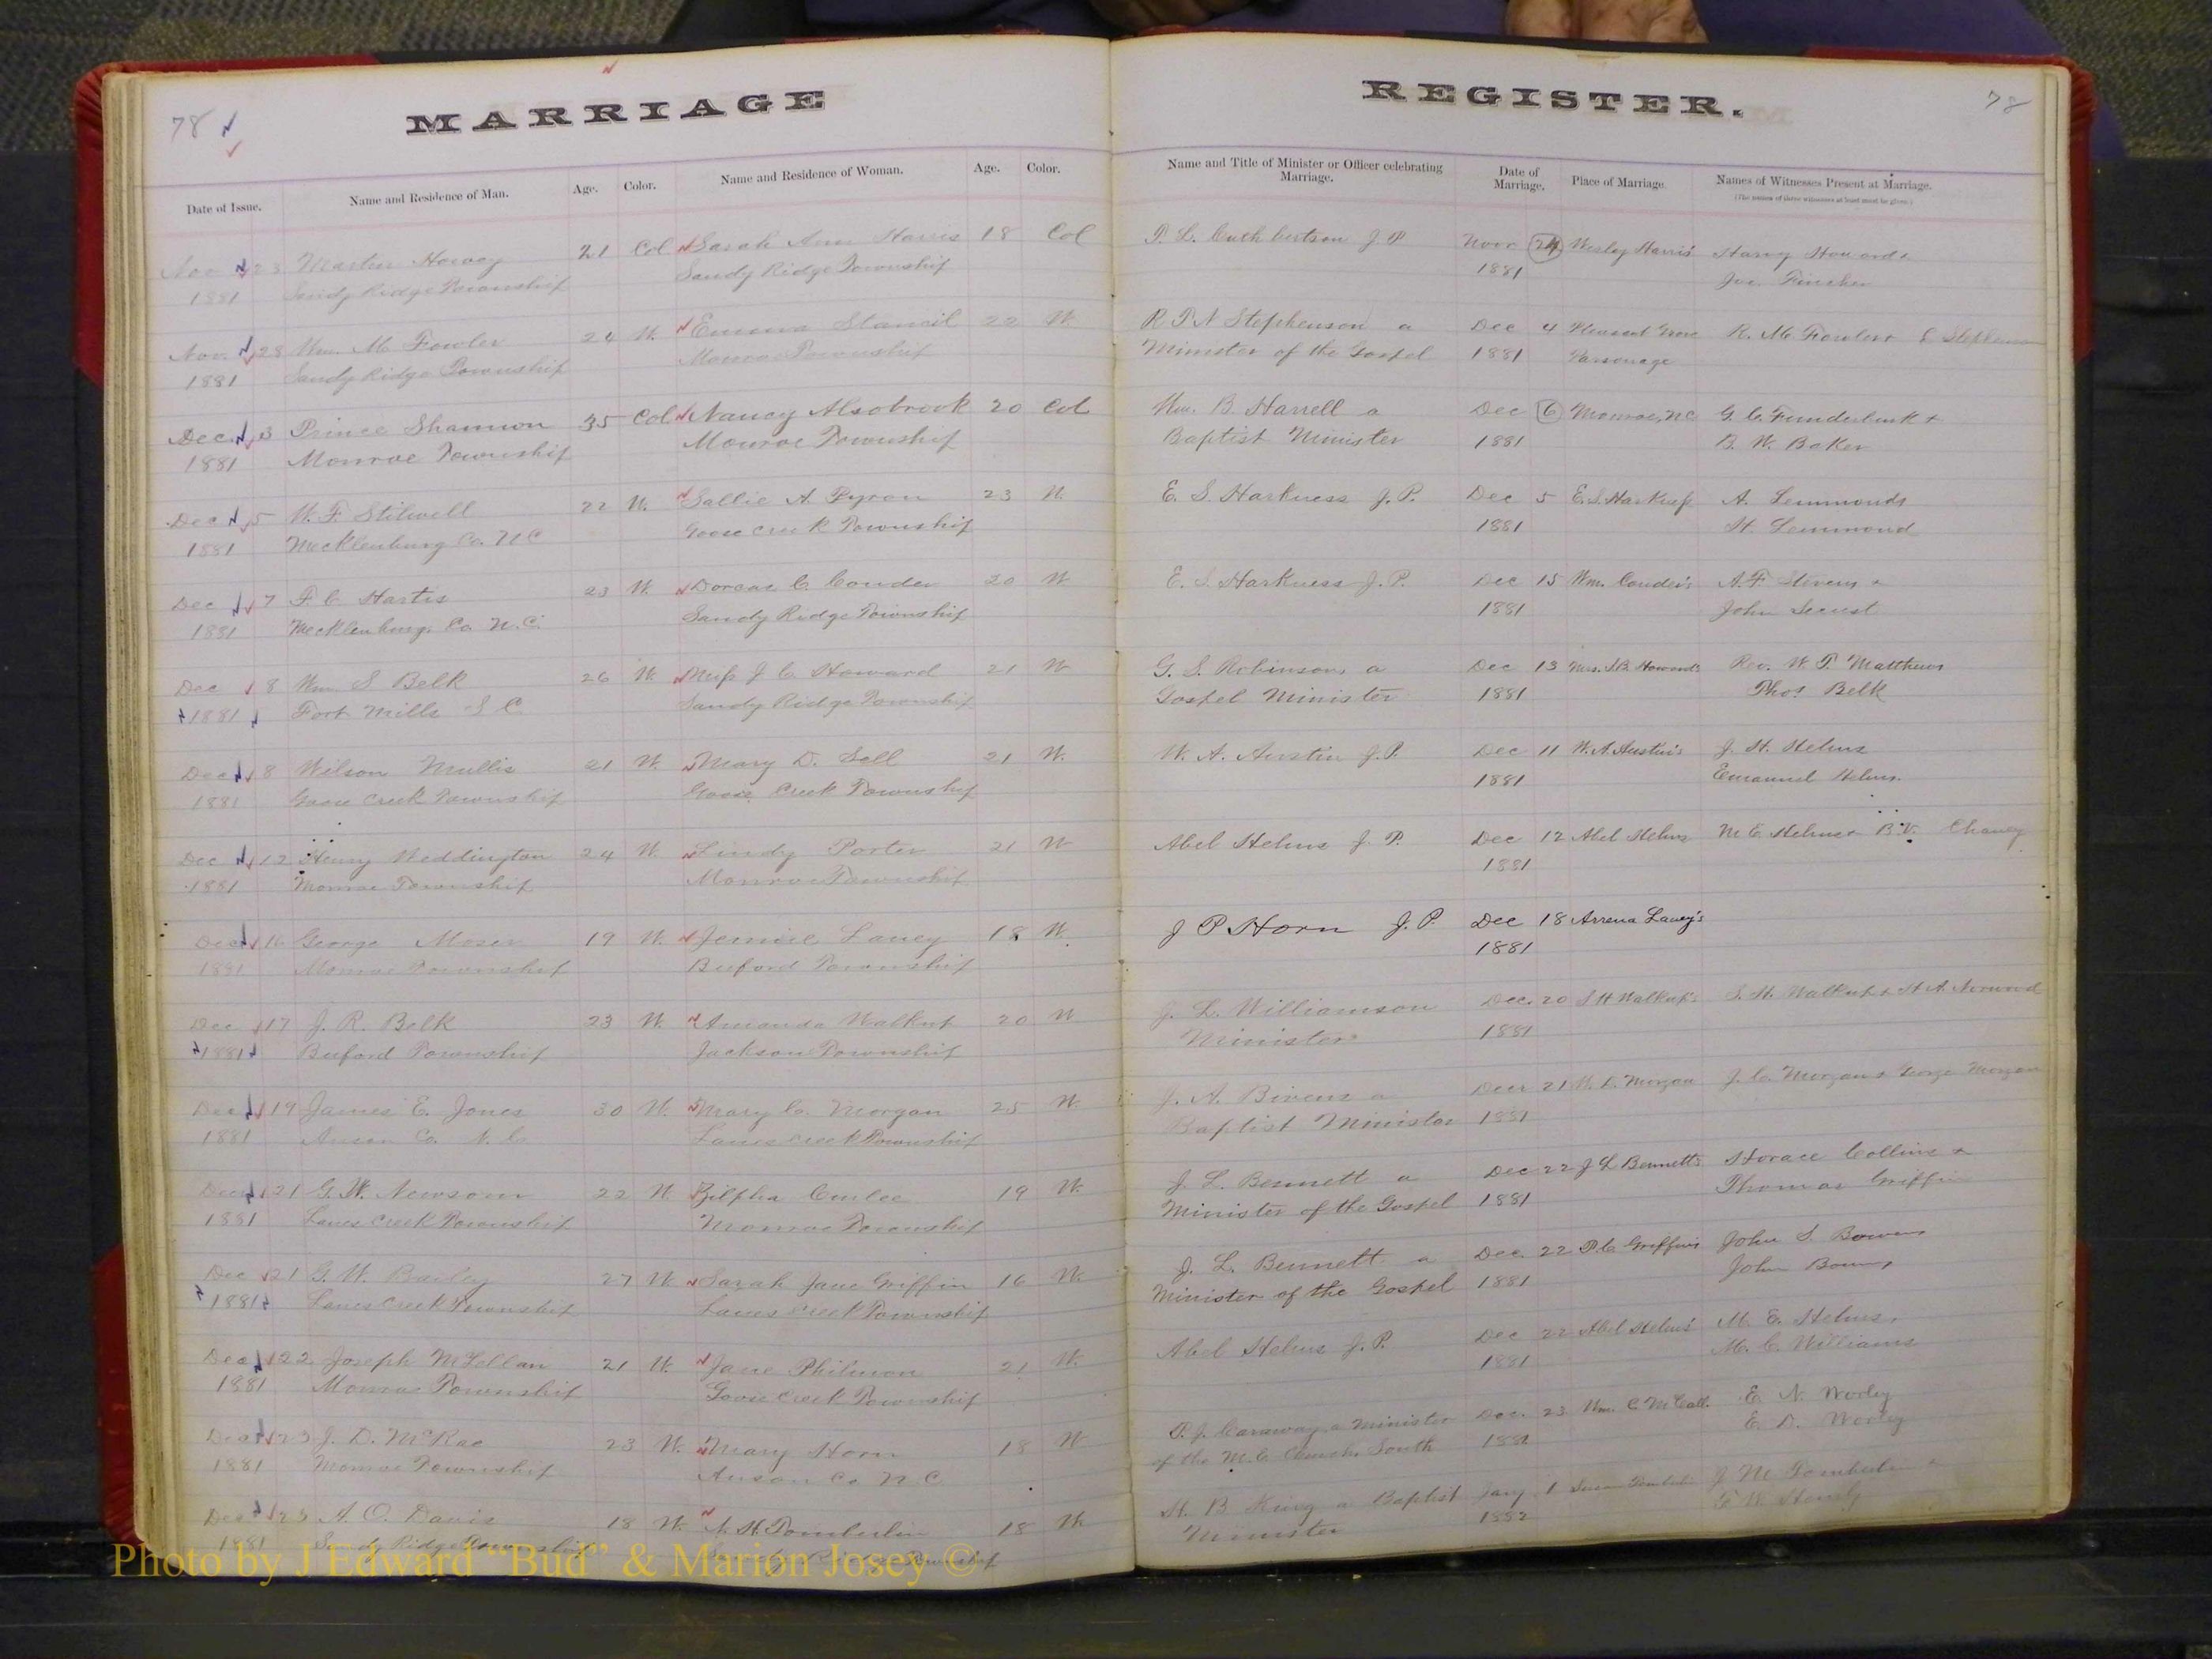 78
MARRIAGE
REGISTER.
78
Date of Issue.
Name and Residence of Man.
Age.
Color.
Name and Residence of Woman.
Age.
Color.
Name and Title of Minister or Officer celebrating Marriage.
Date of Marriage.
Place of Marriage.
Names of Witnesses Present at Marriage.
Nov 23 21 Col Sarah Ann Harris 18 Col P. L. Cuthbertson J P Nov 24 Wesley Harris'
1881 Sandy Ridge Township Sandy Ridge Township 1881 Joe. Fincher
Nov. 28 Wm. M Fowler 24 W. Emma Stancil 22 W. R P N Stephenson a Dec 4 Pleasant Grove
1881 Sandy Ridge Township Monroe Township Minister of the Gospel 1881 Parsonage
Dec. 3 Prince Shannon 35 Col Nancy Alsobrook 20 Col Wm. B. Harrell a Dec 6 Monroe, NC G. C. Funderburk +
1881 Monroe Township Monroe Township Baptist Minister 1881 B. W. Baker
Dec 5 W. F. Stilwell 22 W. Sallie A. Pyron 23 W. E. S. Harkness J. P. Dec 5 E. S. Harkness A. Lemmonds
1881 Mecklenburg Co. N C Goose Creek Township 1881 H. Lemmond
Dec 7 F. C Hartis 23 W. Dorcas C. Couder 20 W E. S. Harkness J. P. Dec 15 Wm. Couder's A. F. Stevens +
1881 Mecklenburg, Co. N. C. Sandy Ridge Township 1881 John Secrest
Dec 8 Wm. S Belk 26 W. Miss J C Howard 21 W G. S. Robinson, a Dec 13 Mrs. S. B. Howard's Rev. W. T. Matthews
1881 Fort Mills S C Sandy Ridge Township Gospel Minister 1881 Thos Belk
Dec 8 Wilson Mullis 21 W. Mary D. Sell 21 W. W. A. Austin J. P. Dec 11 W. A Austin's J. H. Helms
1881 Goose Creek Township Goose Creek Township 1881 Emanuel Helms.
Dec 12 Henry Weddington 24 W. Lindy Porter 21 W Abel Helms J. P. Dec 12 Abel Helms M E Helms + B. V. Chaney
1881 Monroe Township Monroe Township 1881
Dec 16 George Moser 19 W. Jennie Laney 18 W. J P Horn J. P. Dec 18 Arrena Laney's
1881 Monroe Township Buford Township 1881
Dec 17 J. R. Belk 23 W. Amanda Walkup 20 W J. L. Williamson Dec. 20 S H Walkup's S. H. Walkup +
1881 Buford Township Jackson Township Minister 1881
Dec 19 James E. Jones 30 W. Mary C. Morgan 25 W. J. A. Bivens a Decr 21 W. D. Morgan J. C. Morgan + George Morgan
1881 Anson Co. N. C. Lanes Creek Township Baptist Minister 1881
Dec 21 G. W. Newsom 22 W Zilpha Curlee 19 W. J. L. Bennett a Dec 22 J L Bennett's Horace Collins +
1881 Lanes Creek Township Monroe Township Minister of the Gospel 1881 Thomas Griffin
Dec 21 G. W. 27 W Sarah Jane Griffin 16 W. J. L. Bennett a Dec. 22 P. C Griffin's John S. Bowers
1881 Lanes Creek Township Lanes Creek Township Minister of the Gospel 1881 John
Dec 22 Joseph McLellan 21 W. Jane Philmon 21 W. Abel Helms J. P. Dec 22 Abel Helms' M. E. Helms,
1881 Monroe Township Goose Creek Township 1881 M. C. Williams
Dec 23 J. D. McRae 23 W. Mary Horn 18 W P. J. Caraway, a Minister Dec. 23 Wm. C McCall. E. N. Worley
1881 Monroe Township Anson Co N. C of the M. E. Church, South 1881 E. D. Worley
Dec 23 A. O. Davis 18 W. Tomberlin 18 W H. B King a Baptist Jany 1 J M Tomberlin
1881 Sandy Ridge Township Township Minister 1882
Photo by J Edward "Bud" & Marion Josey ©